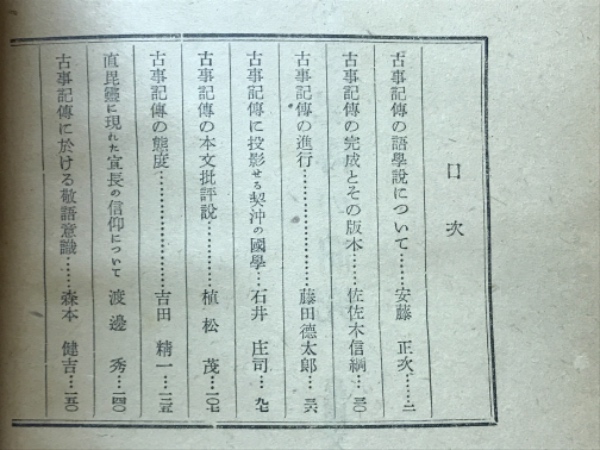 目次
古事記傳の語學說について……安藤 正次……二
古事記傳の完成とその版本……佐佐木信綱…三〇
古事記傳の進行……………藤田德太郎…三六
古事記傳に投影せる契沖の國學…石井 庄司…九七
古事記傳の本文批評說…………植松 茂…一〇七
古事記傳の態度………………吉田 精一…一二五
直毘靈に現れた宣長の信仰について 渡邊 秀…一四〇
古事記傳に於ける敬語意識……森本 健吉…一五〇